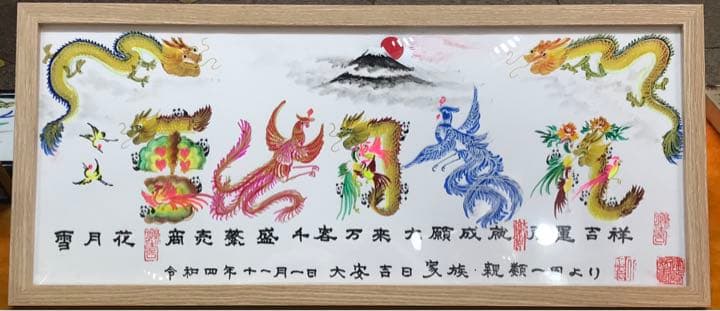 雪月花
雪月花 商売繁盛 千客万来 大願成就 開運吉祥
令和四年十一月一日 大安吉日 家族・親類一同より